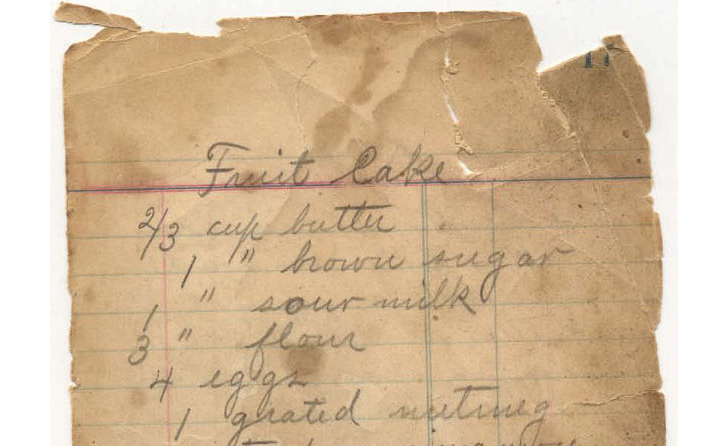 Fruit Cake
2/3 cup butter
1 " brown sugar
1 " sour milk
3 " flour
4 eggs
1 grated nutmeg